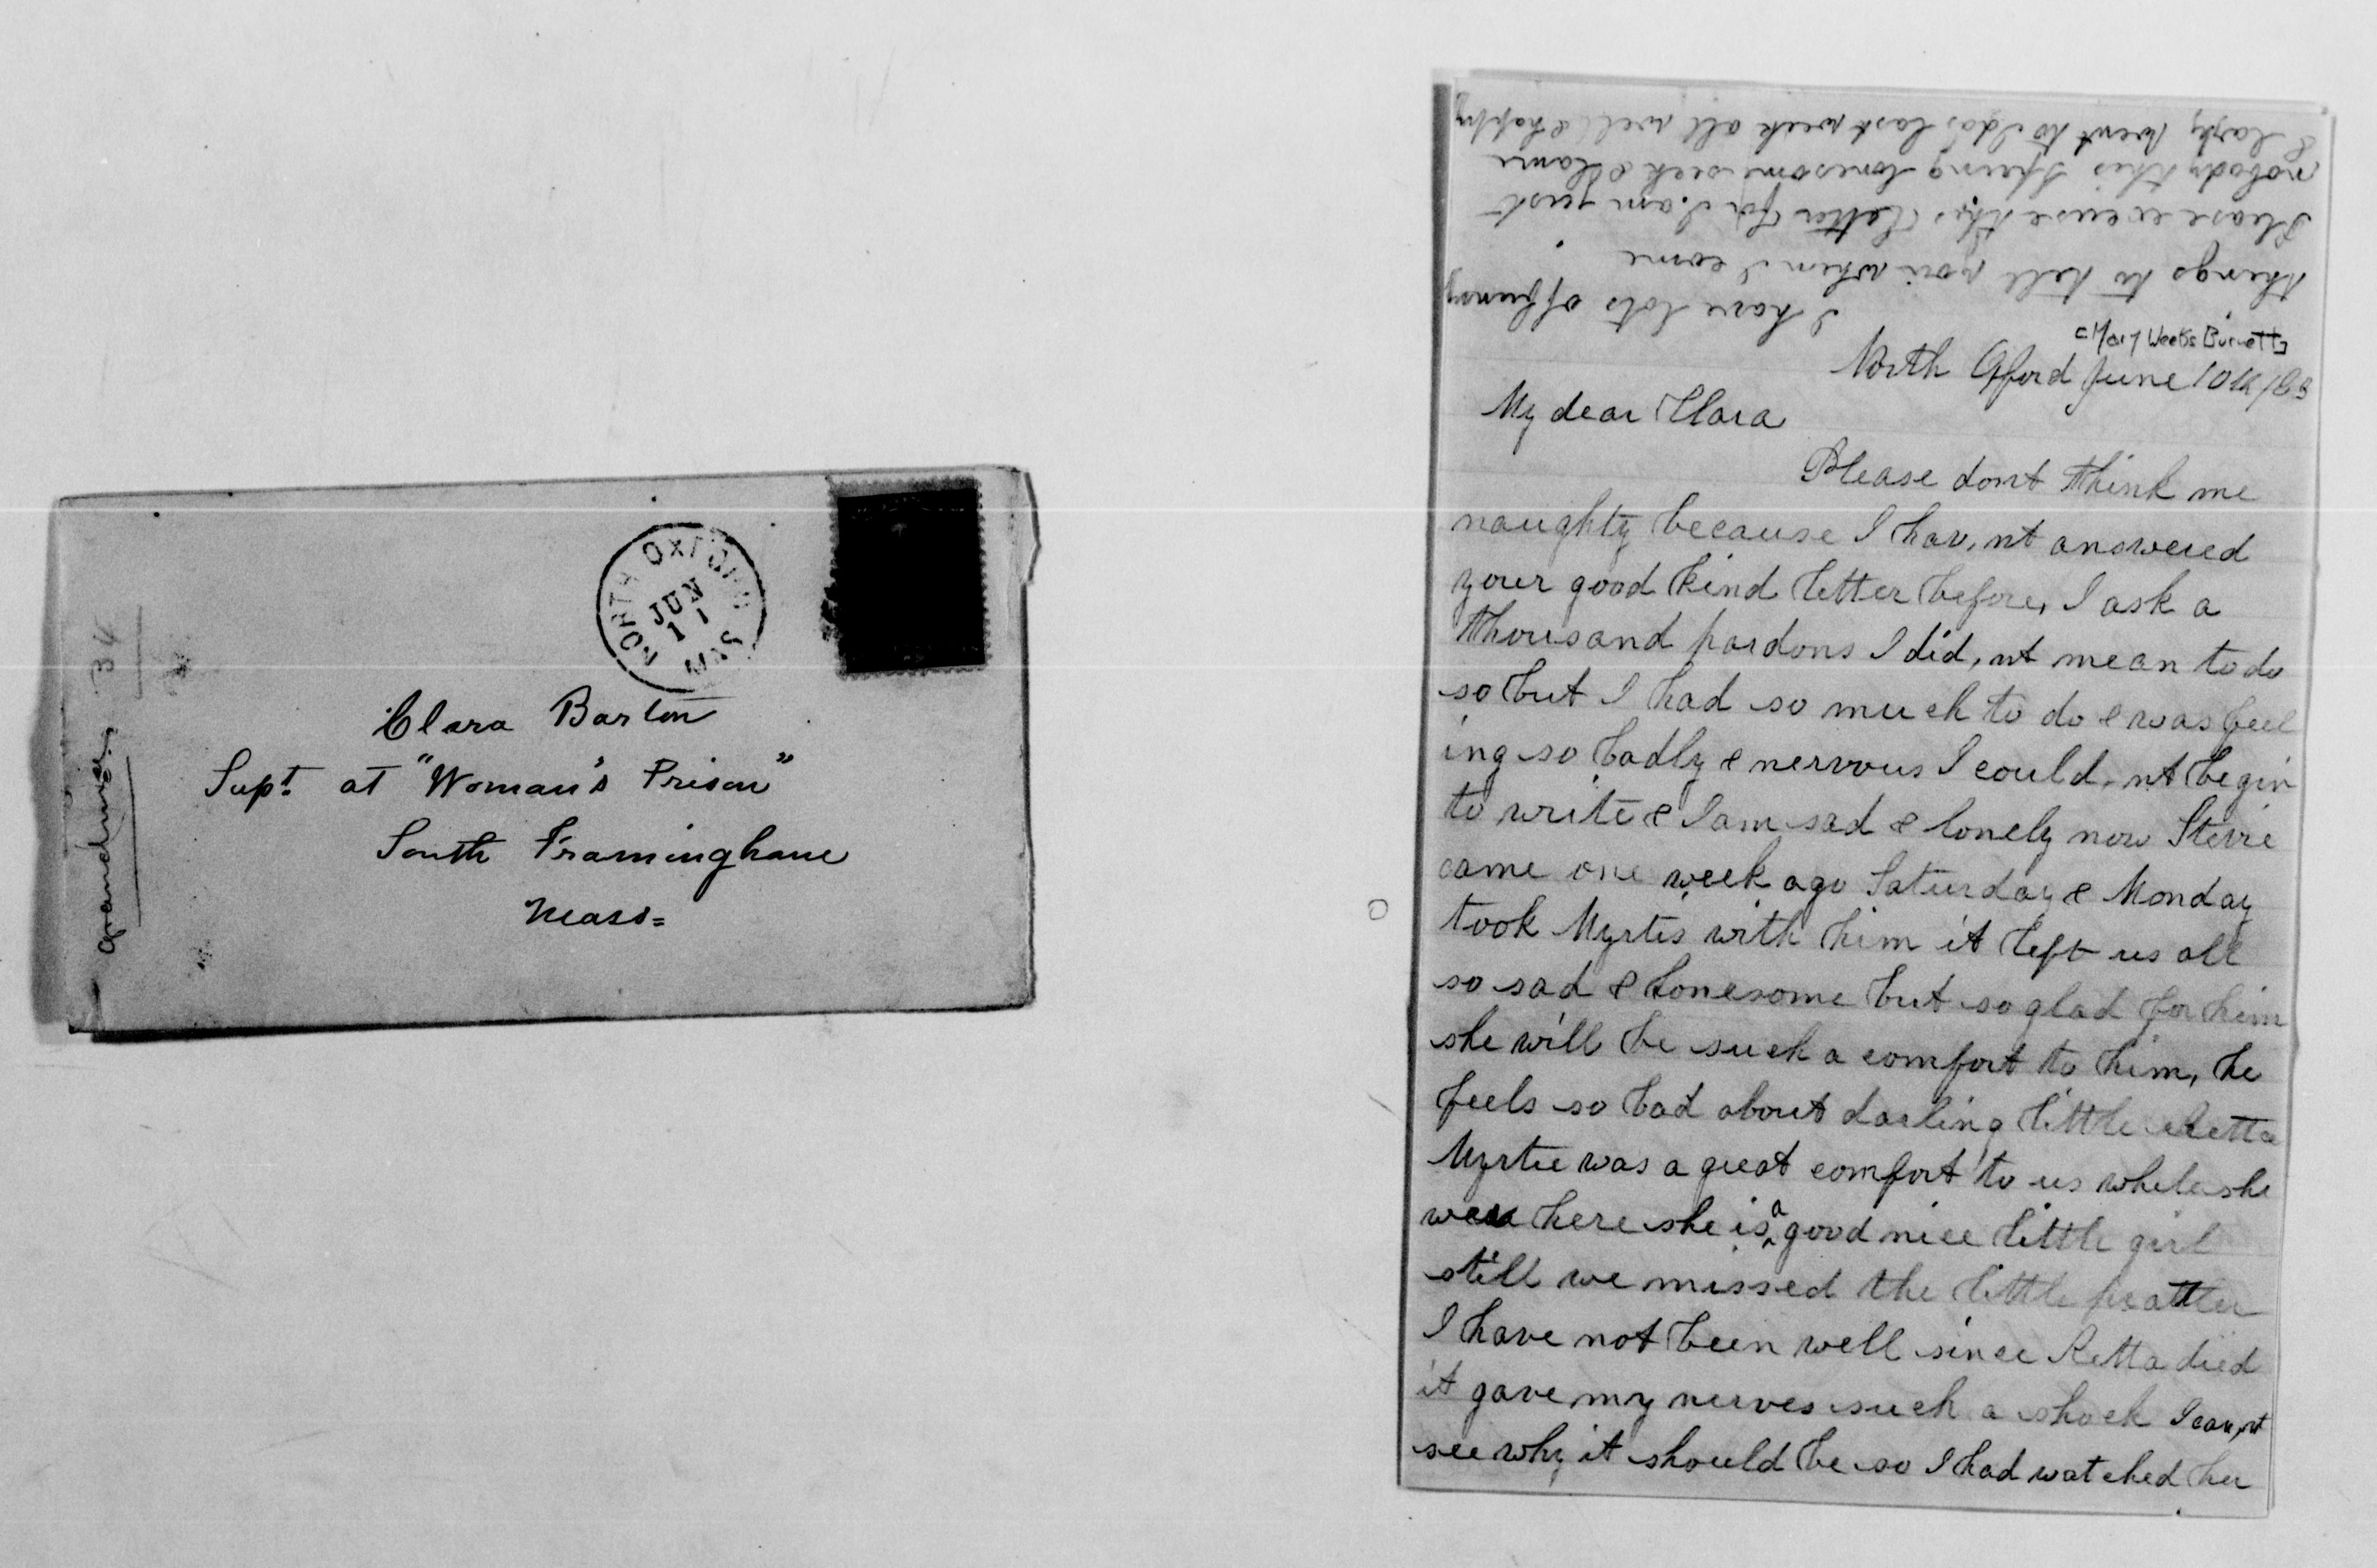 NORTH OXFORD
JUN
11
MAS
Clara Barton
Supt. at "Woman's Prison"
South Framingham
Mass=
34
I have lots of funny
things to tell you when I come
Please excuse this letter for I am just
nobody this Spring lonesome sick & lame
& lazy went to Ida's last week all well & happy
[Mary Weeks Burnett]
North Oxford June 10th /83
My dear Clara
Please dont think me
naughty because I hav,nt answered
your good kind letter before, I ask a
thousand pardons I did,nt mean to do
so but I had so much to do & was feel
ing so badly & nervous I could,nt begin
to write & I am sad & lonely now Stevie
came one week ago Saturday & Monday
took Myrtis with him it left us all
so sad & lonesome but so glad for him
she will be such a comfort to him, he
feels so bad about darling little Retta
Myrtie was a great comfort to us while she
was here she is a good nice little girl
still we missed the little prattler
I have not been well since Retta died
it gave my nerves such a shock I can,nt
see why it should be so I had watched her